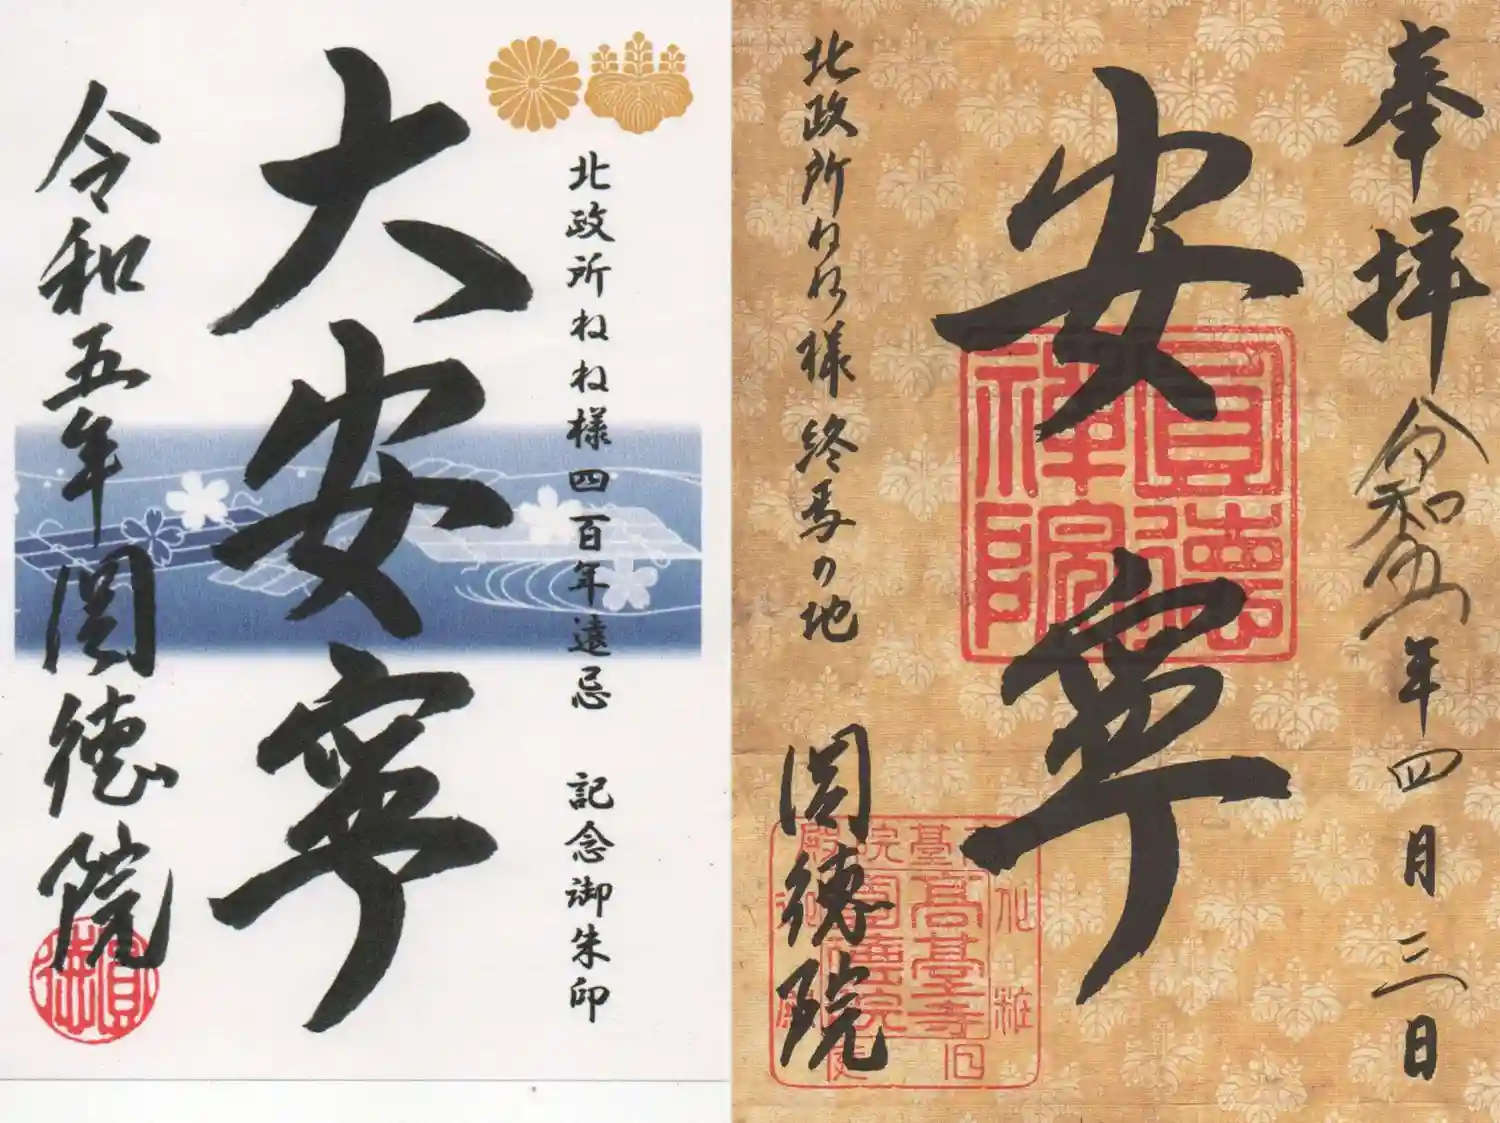 北政所ねね様四百年遠忌 記念御朱印
大安寧
令和五年圓徳院
奉拝 令和五年四月三日
安寧
北政所ねね様終焉の地
圓徳院
圓德
禅院
高臺寺
圓德院